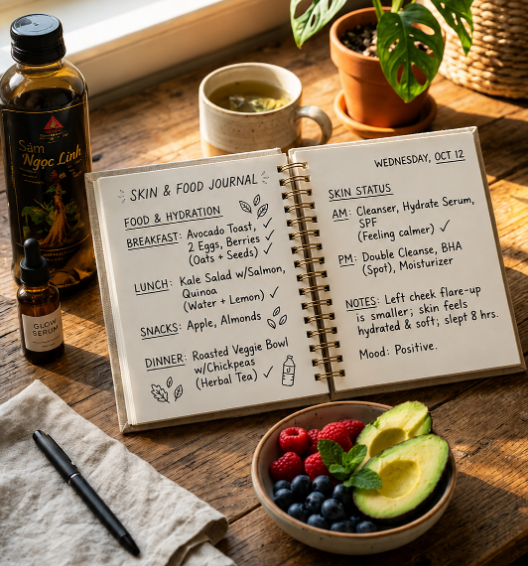 Sâm
Ngọc Linh
GLOW
SERUM
SKIN & FOOD JOURNAL
FOOD & HYDRATION
BREAKFAST: Avocado Toast, ✓
2 Eggs, Berries ✓
(Oats + Seeds) ✓
LUNCH: Kale Salad w/Salmon,
Quinoa
(Water + Lemon) ✓
SNACKS: Apple, Almonds
DINNER: Roasted Veggie Bowl
w/Chickpeas
(Herbal Tea) ✓
WEDNESDAY, OCT 12
SKIN STATUS
AM: Cleanser, Hydrate Serum,
SPF
(Feeling calmer) ✓
PM: Double Cleanse, BHA
(Spot), Moisturizer
NOTES: Left cheek flare-up
is smaller; skin feels
hydrated & soft; slept 8 hrs.
Mood: Positive.